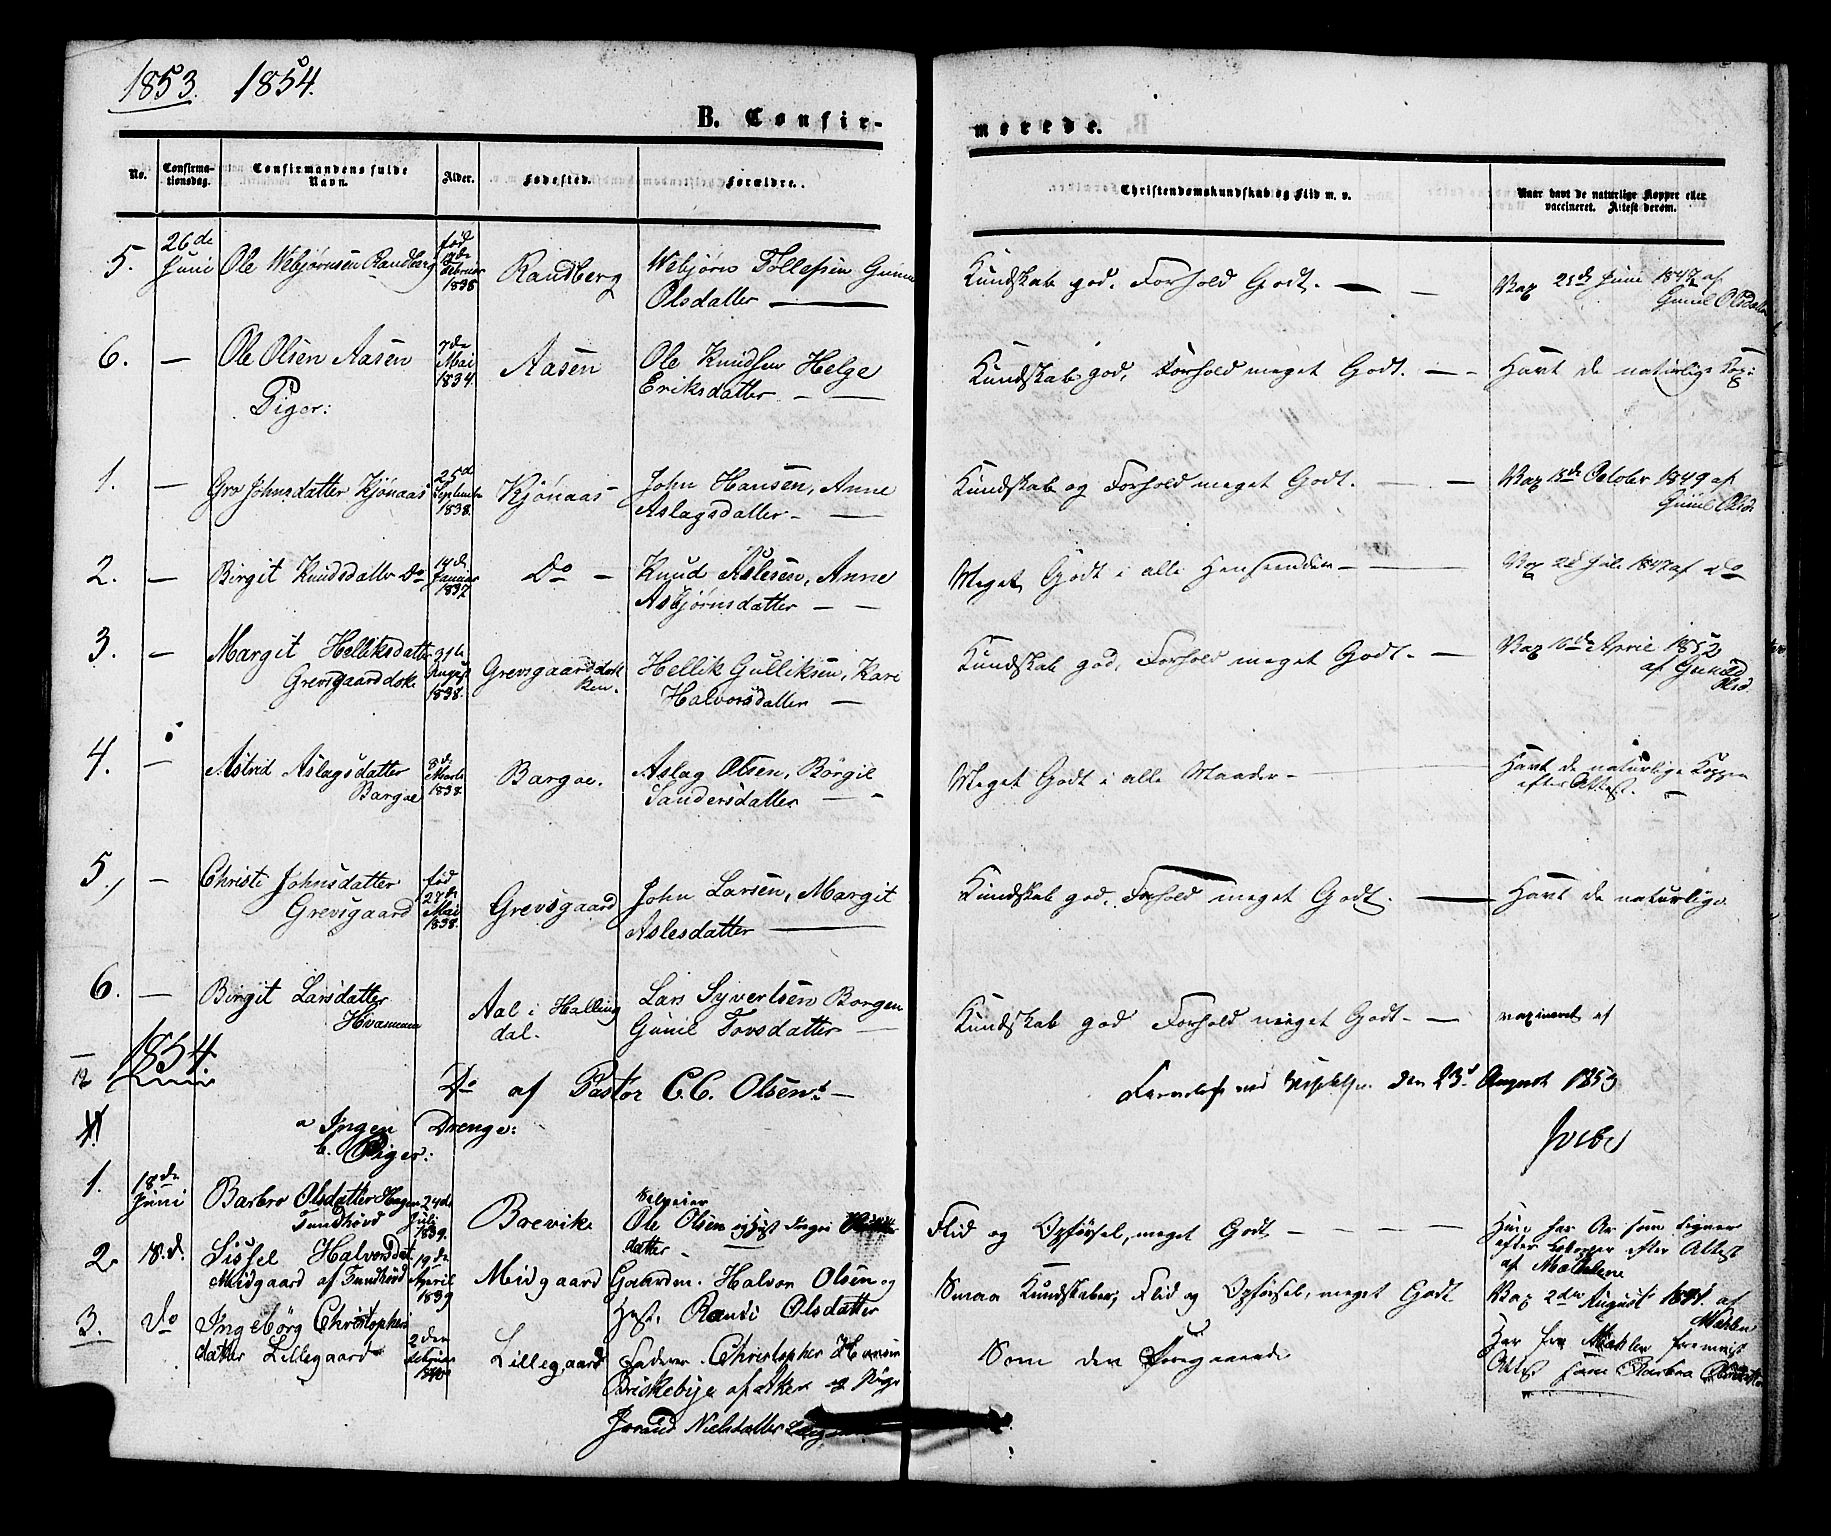 1853. 1854.
B. Confir-
merede.
No.
Confirma-
tionsdag.
Confirmandens fulde
Navn.
Alder.
Fødested.
Forældre.
Christendomskundskab og Flid m. v.
Naar havt de naturlige Kopper eller
vaccineret. Attest derom.
5. 26de Juni Ole Webjørnsen Randberg født Februar 1838 Randberg Webjørn Tollefsen
Olsdatter — Kundskab god. Forhold Godt. — — Vax 25de Juni 1847 af
Gunil Olsdatter
6. — Ole Olsen Aasen 7de Mai 1834. Aasen Ole Knudsen Helge
Eriksdatter — — Kundskab god, Forhold meget Godt. — — Havt de naturlige Kop:
Piger:
1. — Gro Johnsdatter Kjønaas 25de September 1838. Kjønaas John Hansen, Anne
Aslagsdatter — — Kundskab og Forhold meget Godt. — — Vax 18de October 1849 af
Gunil Olsd
2. — Birgit Knudsdatter Do 14de Januar 1837 Do — Knud Aslesen, Anne
Asbjørnsdatter — — Meget Godt i alle Henseender — Vax 2d Juli 1847 af Do
3. — Margit Helliksdatter
Grevsgaarddok 31te August 1838. Grevsgaarddok
ken. Hellik Gulliksen, Kari
Halvorsdatter — Kundskab god, Forhold meget Godt. — Vax 16de April 1852
af Gunild
Olsd.
4. — Astrid Aslagsdatter
Bargae 8de Marts 1838. Bargae. Aslag Olsen, Børgil
Sandersdatter — Meget Godt i alle Maader — Havt de naturlige Kopper
efter Attest. —
5, — Christi Johnsdatter
Grevsgaard fød 27de Mai 1838. Grevsgaard John Larsen, Margit
Aslesdatter — Kundskab god, Forhold meget Godt. — Havt de naturlige
6. — Birgit Larsdatter
Hvammen Aal i Halling
dal. Lars Syvertsen Borgen
Gunil Tovsdatter — Kundskab god Forhold meget Godt. — vaxineret af
1854.
12
Do af Pastor C. C. Olsen: —
den 23d August 1853
a Ingen Drenge:
b. Piger:
1. 18de Juni Barbro Olsdatter Hagen
Tundhövd 24de Juli 1839. Brevik Selveier
Ole Olsen og Hust Ingri
datter — Flid og Opførsel, meget Godt — — — — Hun har Ar som Signer
efter Kopper efter Attest
af Mathlene
2. 18.d. Sissel Halvorsdat
Midgaard af Tundhövd 19de April 1839 Midgaard Gaardm. Halvor Olsen og
Hust. Randi Olsdatter Smaa Kundskaber, Flid og Opførsel, meget Godt Vax 2den August 1841. af
Mahlen
3. Do Ingebörg Christopher
datter Lillegaard 2den Februar 1840 Lillegaard Fader. Christopher Hansen
Briskebye af Aker og Pige
Jorand Nielsdatter Som den Foregaaende Har fra Mahlen fremvist
Attest Barbra